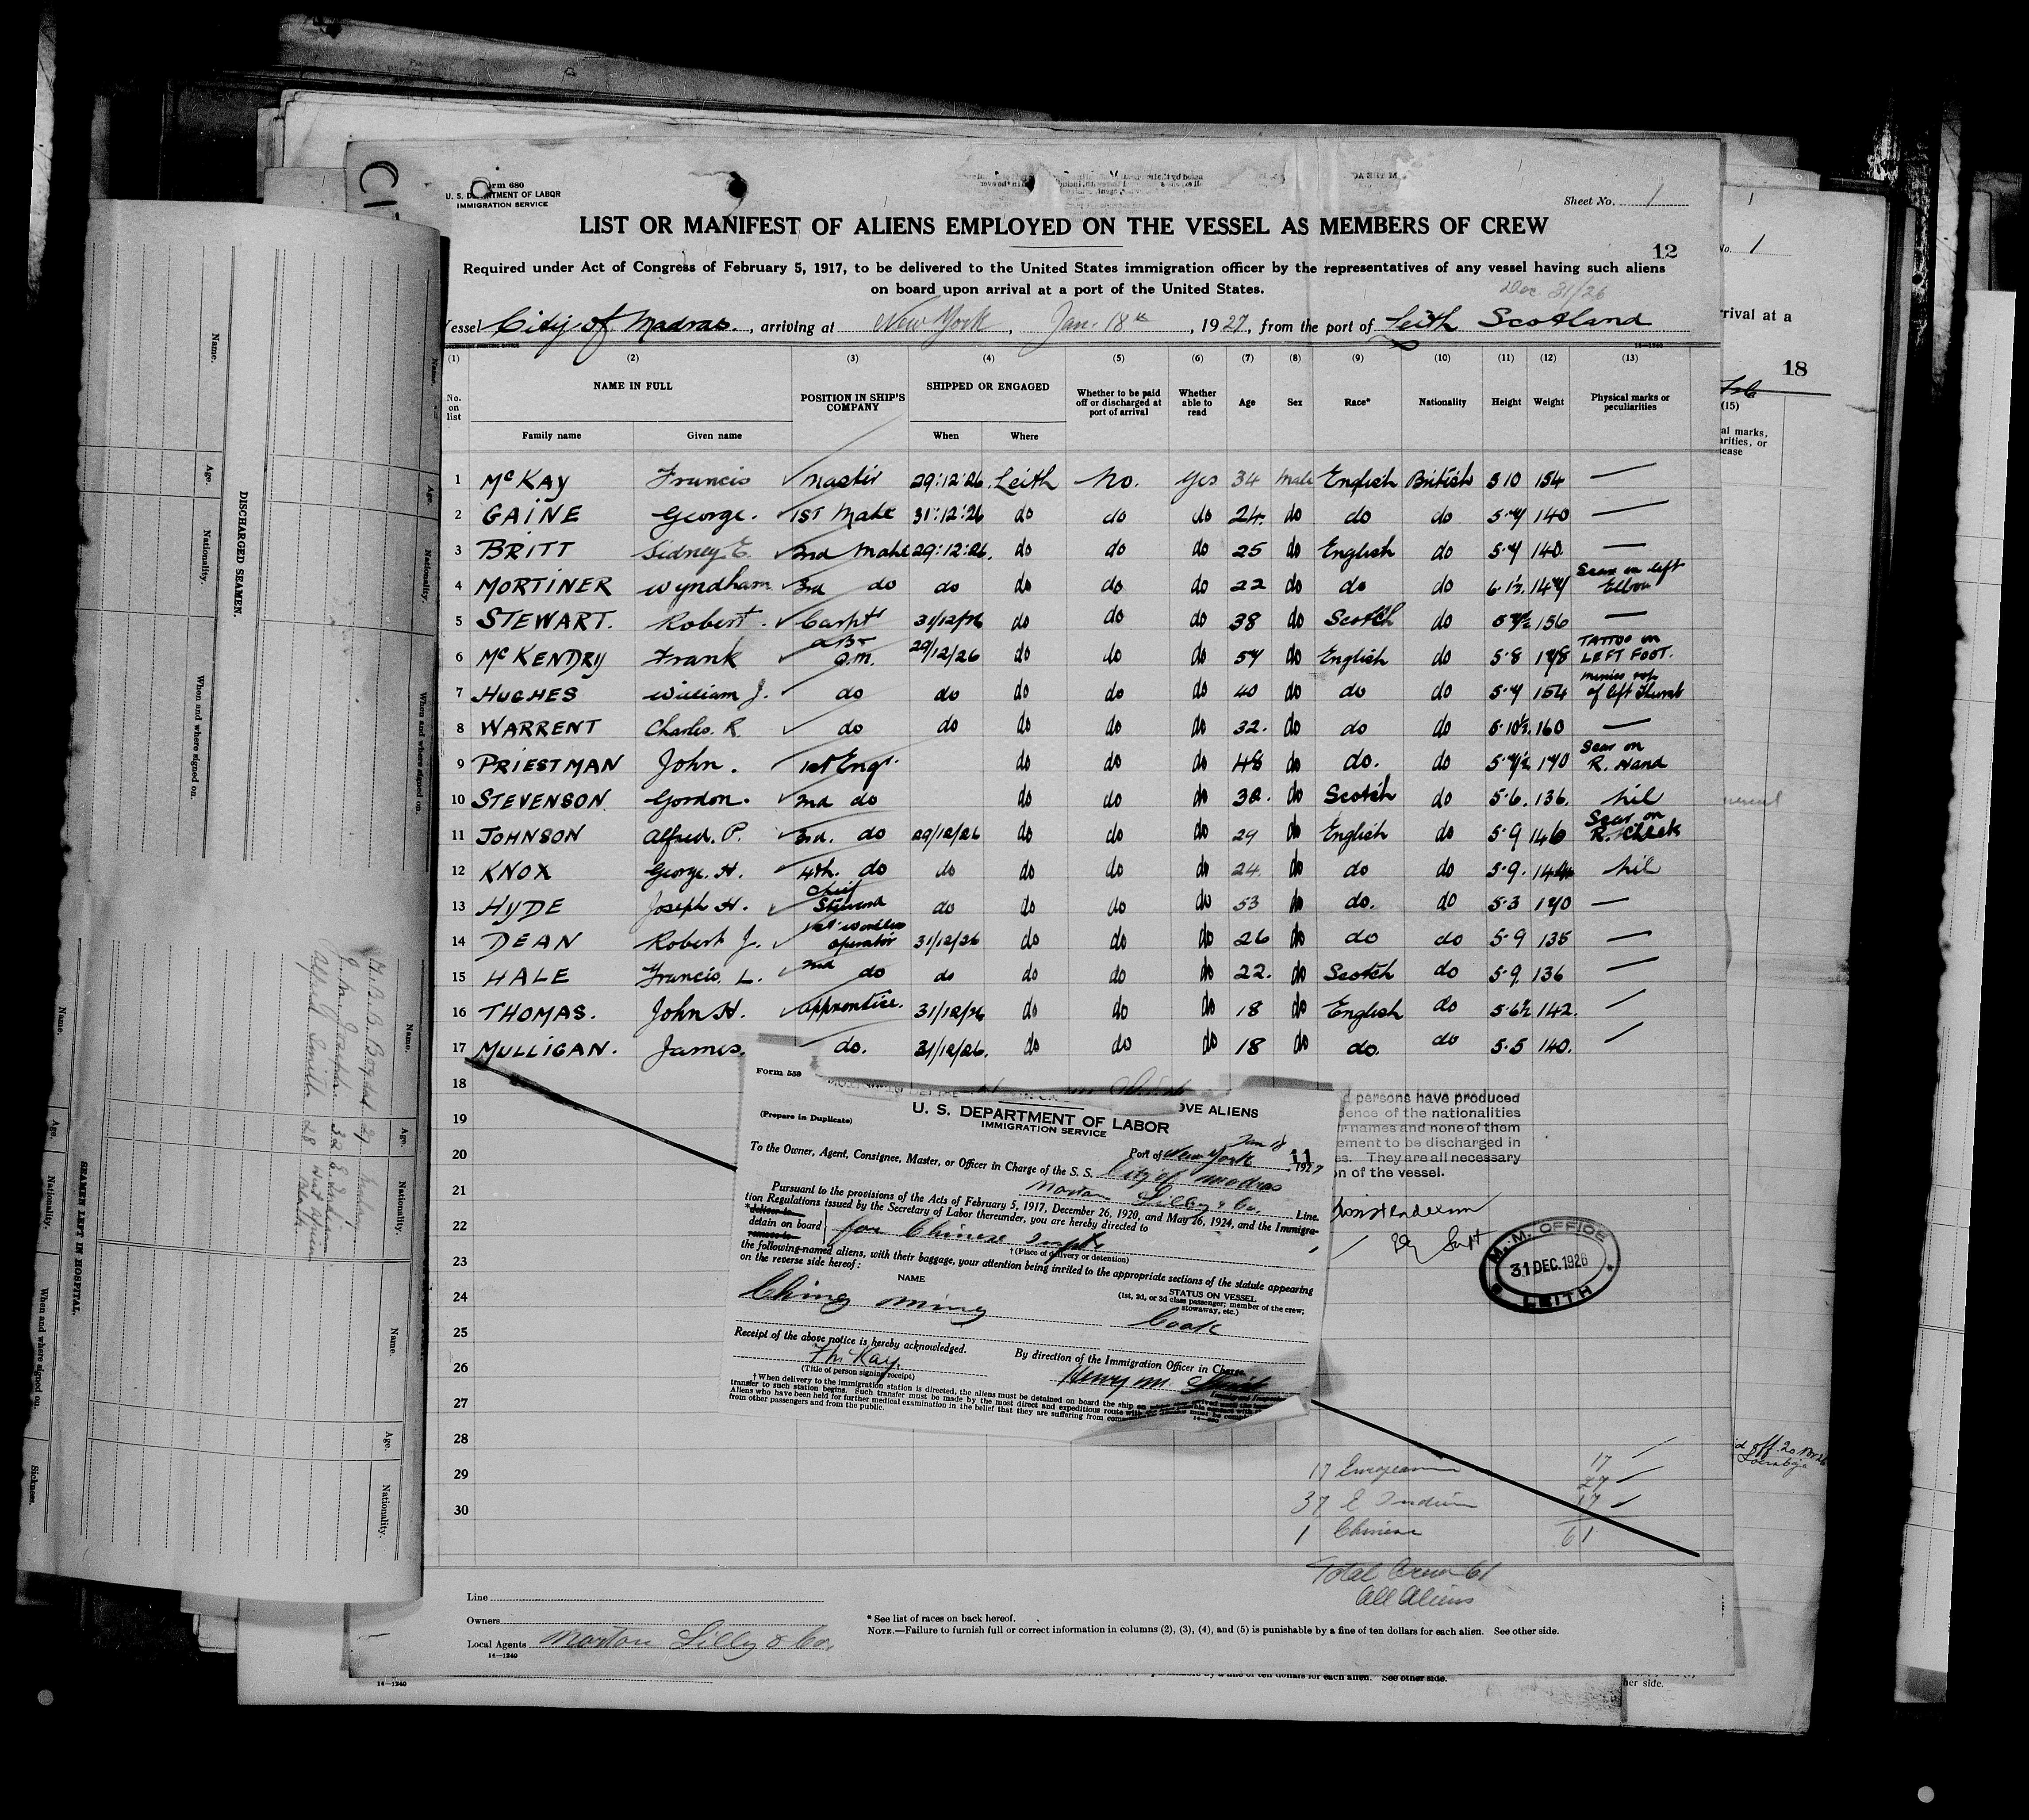 Form 680
U. S. DEPARTMENT OF LABOR
IMMIGRATION SERVICE
Sheet No. 1
LIST OR MANIFEST OF ALIENS EMPLOYED ON THE VESSEL AS MEMBERS OF CREW
12
Required under Act of Congress of February 5, 1917, to be delivered to the United States immigration officer by the representatives of any vessel having such aliens
on board upon arrival at a port of the United States.
Dec 31/26
Vessel City of Madras., arriving at New York, Jan. 18th, 1927, from the port of Leith Scotland
(1) (2) (3) (4) (5) (6) (7) (8) (9) (10) (11) (12) (13)
No. on list NAME IN FULL Family name Given name POSITION IN SHIP'S COMPANY SHIPPED OR ENGAGED When Where Whether to be paid off or discharged at port of arrival Whether able to read Age Sex Race* Nationality Height Weight Physical marks or peculiarities
1 McKAY Francis Master 29:12:26. Leith No. Yes 34 Male English British 5 10 154 —
2 GAINE George. 1ST Mate 31:12:26 do do do 24. do do do 5·7 140 —
3 BRITT Sidney E. 2nd Mate 29:12:26. do do do 25 do English do 5·7 140. —
4 MORTINER Wyndham 3rd do do do do do 22 do do do 6·1½. 147 Scar on left Elbow
5 STEWART. Robert. Carptr 31/12/26 do do do 38 do Scotch do 5 7½ 156 —
6 McKENDRY Frank Q.M. 29/12/26 do do do 57 do English do 5·8 178 TATTOO on LEFT FOOT.
7 HUGHES William J. do do do do do 40 do do do 5·7 154 minus top of left Thumb
8 WARRENT Charles. R. do do do do do 32. do do do 5·10½. 160 —
9 PRIESTMAN John. 1st Engr. do do do 48 do do. do 5·7½ 170 Scar on R. Hand
10 STEVENSON Gordon. 2nd do do do do 32. do Scotch do 5·6. 136. Nil
11 JOHNSON Alfred. P. 3rd. do 29/12/26 do do do 29 do English do 5·9 146 Scar on R. Cheek
12 KNOX George. H. 4th. do do do do do 24. do do do 5·9. 144 Nil
13 HYDE Joseph H. Chief Steward do do do do 53 do do. do 5·3 170 —
14 DEAN Robert J. 1st Wireless operator 31/12/26 do do do 26 do do do 5·9 135 —
15 HALE Francis. L. 2nd do do do do do 22. do Scotch do 5·9. 136 —
16 THOMAS. John H. Apprentice. 31/12/26 do do do 18 do English do 5·6½ 142. —
17 MULLIGAN. James. do. 31/12/26. do do do 18 do do. do 5·5 140. —
18
19
20
21
22
23
24
25
26
27
28
29
30
Form 559
(Prepare in Duplicate)
OVE ALIENS
U. S. DEPARTMENT OF LABOR
IMMIGRATION SERVICE
Port of New York Jan 18, 1927
11
To the Owner, Agent, Consignee, Master, or Officer in Charge of the S. S. City of Madras
Norton Lilly & Co. Line.
Pursuant to the provisions of the Acts of February 5, 1917, December 26, 1920, and May 26, 1924, and the Immigra-
tion Regulations issued by the Secretary of Labor thereunder, you are hereby directed to
*deliver to
detain on board for Chinese Inspr
remove to
†(Place of delivery or detention)
the following-named aliens, with their baggage, your attention being invited to the appropriate sections of the statute appearing
on the reverse side hereof:
NAME
STATUS ON VESSEL
(1st, 2d, or 3d class passenger; member of the crew;
stowaway, etc.)
Ching Ming
Cook
Receipt of the above notice is hereby acknowledged.
F McKay.
(Title of person signing receipt)
By direction of the Immigration Officer in Charge.
Henry M.
†When delivery to the immigration station is directed, the aliens must be detained on board the ship
transfer to such station begins. Such transfer must be made by the most direct and expeditious route with
Aliens who have been held for further medical examination in the belief that they are suffering from
from other passengers and from the public.
persons have produced
dence of the nationalities
r names and none of them
ement to be discharged in
es. They are all necessary
n of the vessel.
M. M. OFFICE
31 DEC. 1926
LEITH
17 European 17
37 E Indian 27
1 Chinese 17
61
Total Crew 61
All Aliens
Line
Owners
Local Agents Norton Lilly & Co.
14—1240
* See list of races on back hereof.
NOTE.—Failure to furnish full or correct information in columns (2), (3), (4), and (5) is punishable by a fine of ten dollars for each alien. See other side.
14—1240
for each alien. See other side.
her side.
No. 1
rrival at a
18
(15)
al marks,
arities, or
ease
DISCHARGED SEAMEN.
Name. Age. Nationality. When and where signed on.
Name. Age. Nationality. When and where signed on.
SEAMEN LEFT IN HOSPITAL.
Name. Age. Nationality. When and where signed on. Sickness.
Name. Age. Nationality.
Name. Age. Nationality.
J. M. Joseph 32 E Indian
Alfred Smith 28 West African